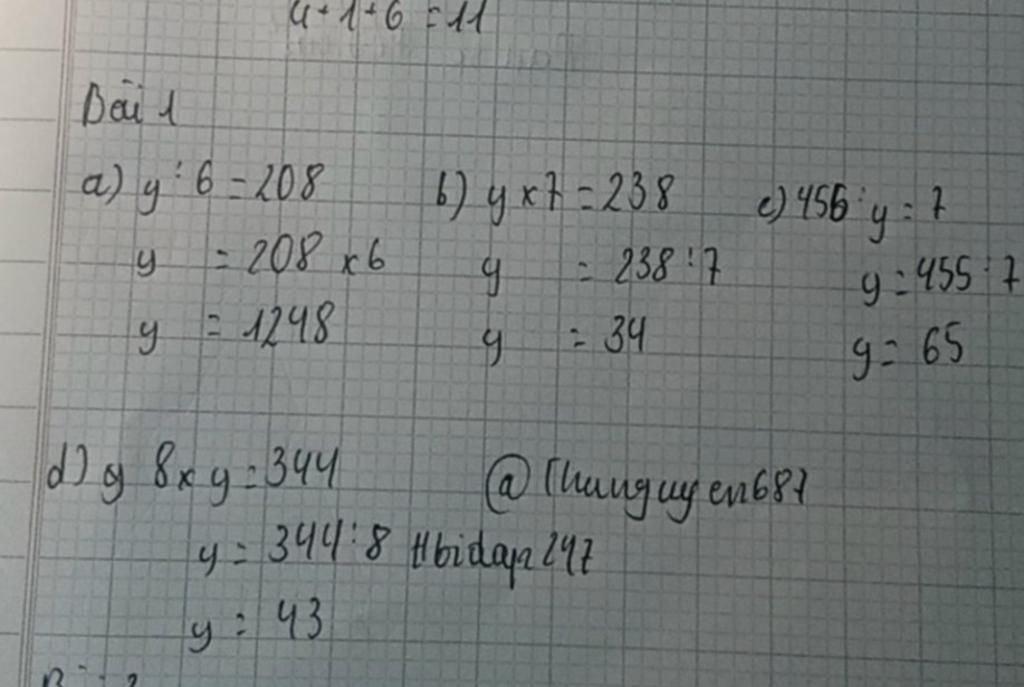 4+1+6=11
Bài 1
a) y:6=208 b) y×7=238 c) 456:y=7
y =208 ×6 y =238:7 y=455:7
y =1248 y =34 y=65
d) y 8×y=344 @Thunguyen687
y=344:8 #bidap247
y=43